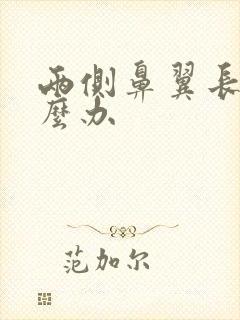 兩側鼻翼長
麼办
范加尔